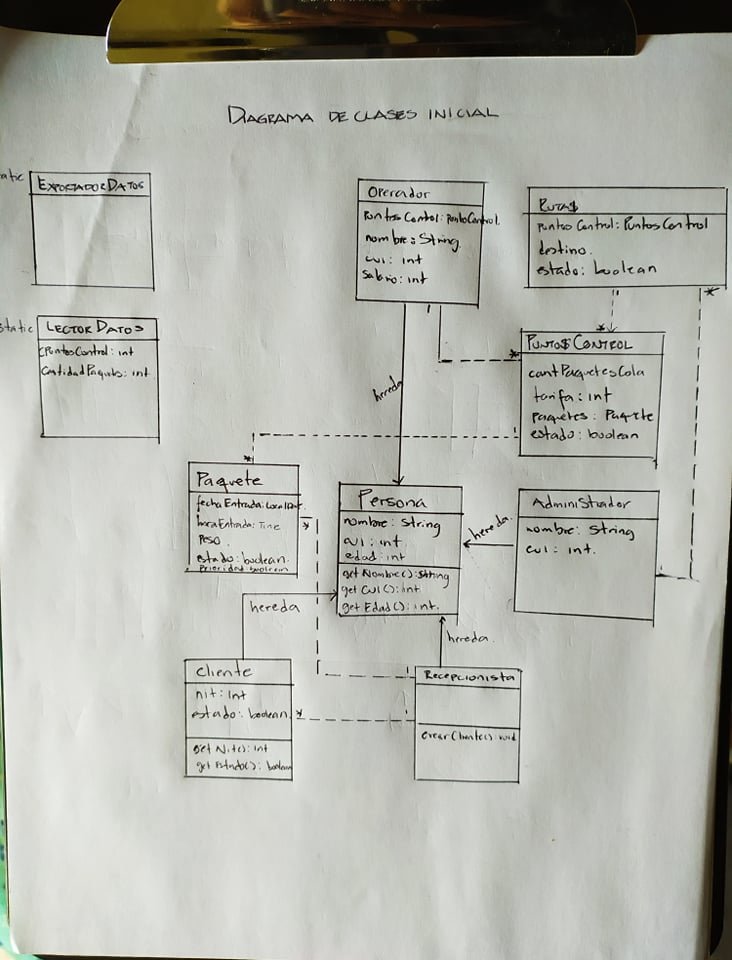 DIAGRAMA DE CLASES INICIAL
EXPORTADOR DATOS
Operador
Puntos Control: PuntoControl.
nombre: String
cui: int
Salario: int
RUTAS
Puntos Control: Puntos Control
destino.
estado: boolean
static
LECTOR DATOS
cPuntosControl: int
CantidadPaquetes: int
*
*
PUNTOS CONTROL
cantPaquetesCola
tarifa: int
paquetes: Paquete
estado: boolean
hereda
*
*
Paquete
fecha Entrada:
horaEntrada: Time
Peso.
estado: boolean.
Prioridad boolean
*
Persona
nombre: String
cui: int
edad: int
get Nombre(): String
get CUI(): int
get Edad(): int.
hereda.
Administrador
nombre: String
cui: int.
hereda
hereda.
Cliente
nit: Int
estado: boolean
get Nit(): int
get Estado(): boolean
*
Recepcionista
crear Cliente(): void